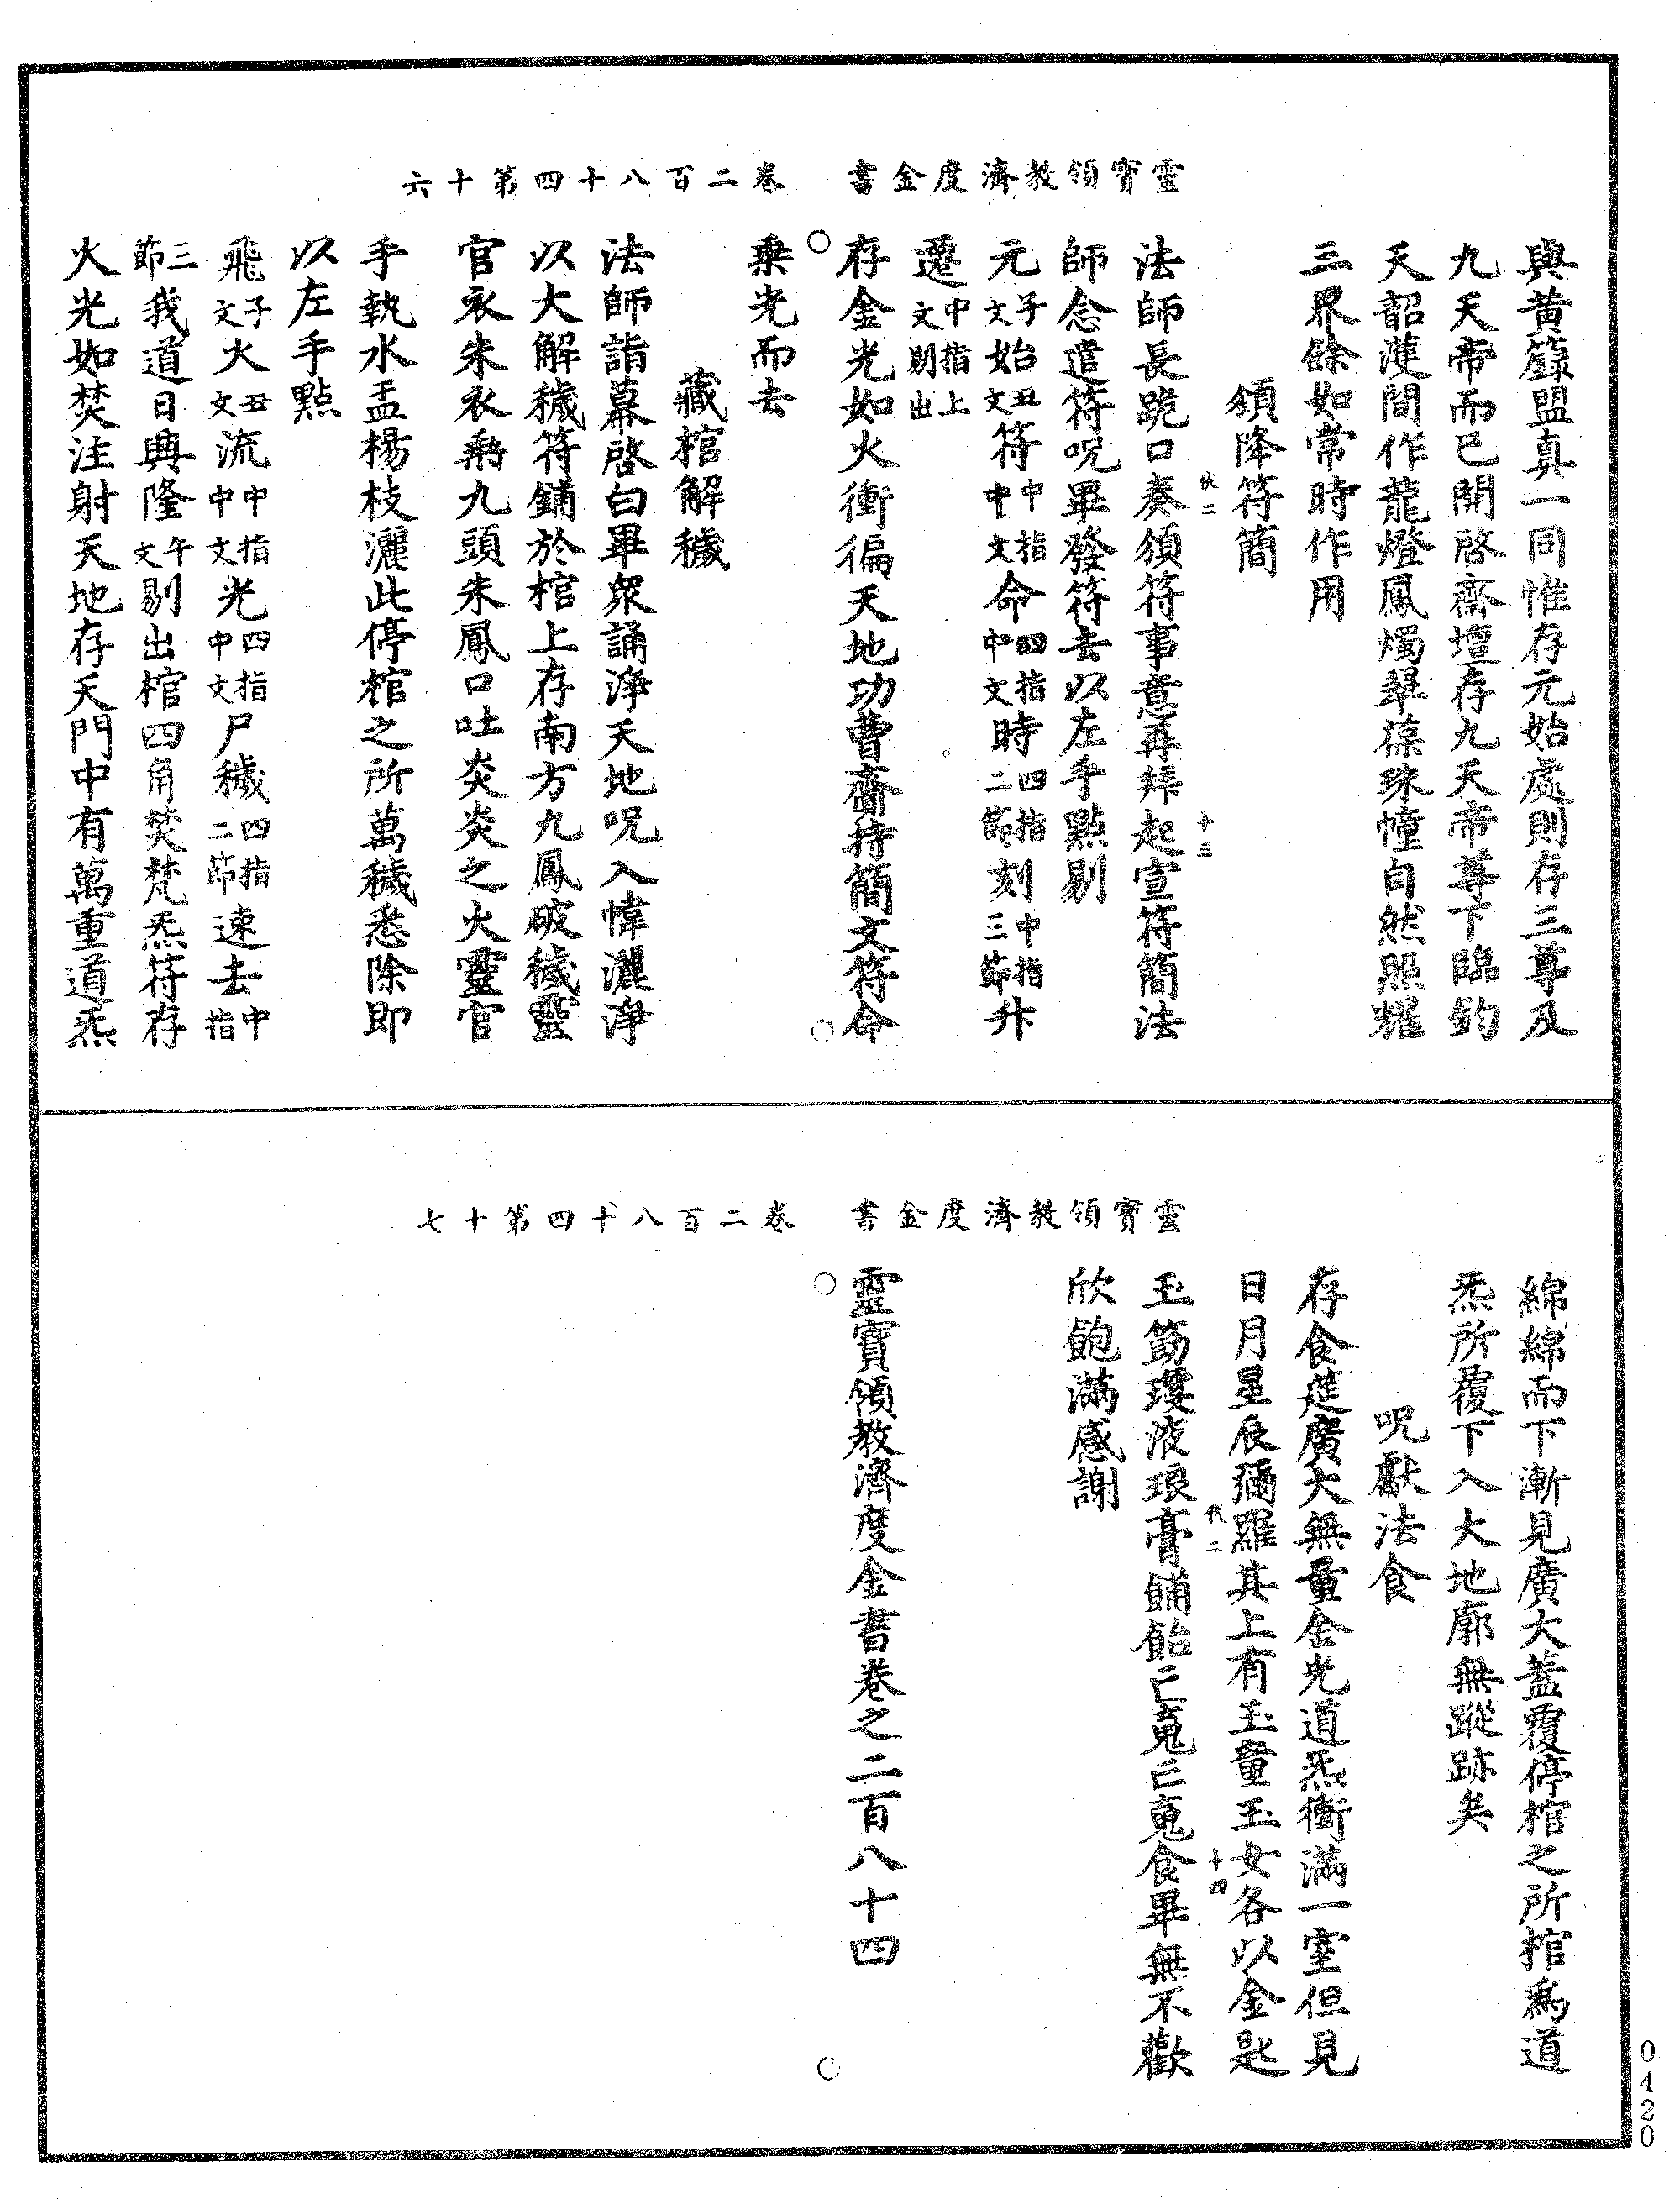 靈寶領教濟度金書　卷二百八十四第十六
與黃籙盟真一同惟存元始處則存三尊及
九天帝而已開啓齋壇存九天帝尊下臨鈞
天韶濩間作龍燈鳳燭翠葆珠幢自然照耀
三界餘如常時作用
頒降符簡
法師長跪口奏頒符事意再拜起宣符簡法
師念遣符呪畢發符去以左手點剔
元子文始台丑文符中指中文命四指中文時四指二節刻中指三節升
遷中指上文剔出
存金光如火衝徧天地功曹齎持簡文符命
乗光而去
藏棺解穢
法師詣幕啓白畢衆誦淨天地呪入幃灑淨
以大解穢符鋪於棺上存南方九鳳破穢靈
官衣朱衣乘九頭朱鳳口吐炎炎之火靈官
手執水盂楊枝灑此停棺之所萬穢悉除即
以左手點
飛子文火丑文流中指中文光四指中文尸穢四指二節速去中指
三節我道日興隆午文剔出棺四角焚梵炁符存
火光如焚注射天地存天門中有萬重道炁
靈寶領教濟度金書　卷二百八十四第十七
綿綿而下漸見廣大蓋覆停棺之所棺為道
炁所覆下入大地廓無蹤跡矣
呪獻法食
存食筵廣大無量金光道炁衝滿一室但見
日月星辰彌羅其上有玉童玉女各以金匙
玉筯瓊液琅膏餔飴亡䰟亡䰟食畢無不歡
欣飽滿感謝
靈寶領教濟度金書卷之二百八十四
0420